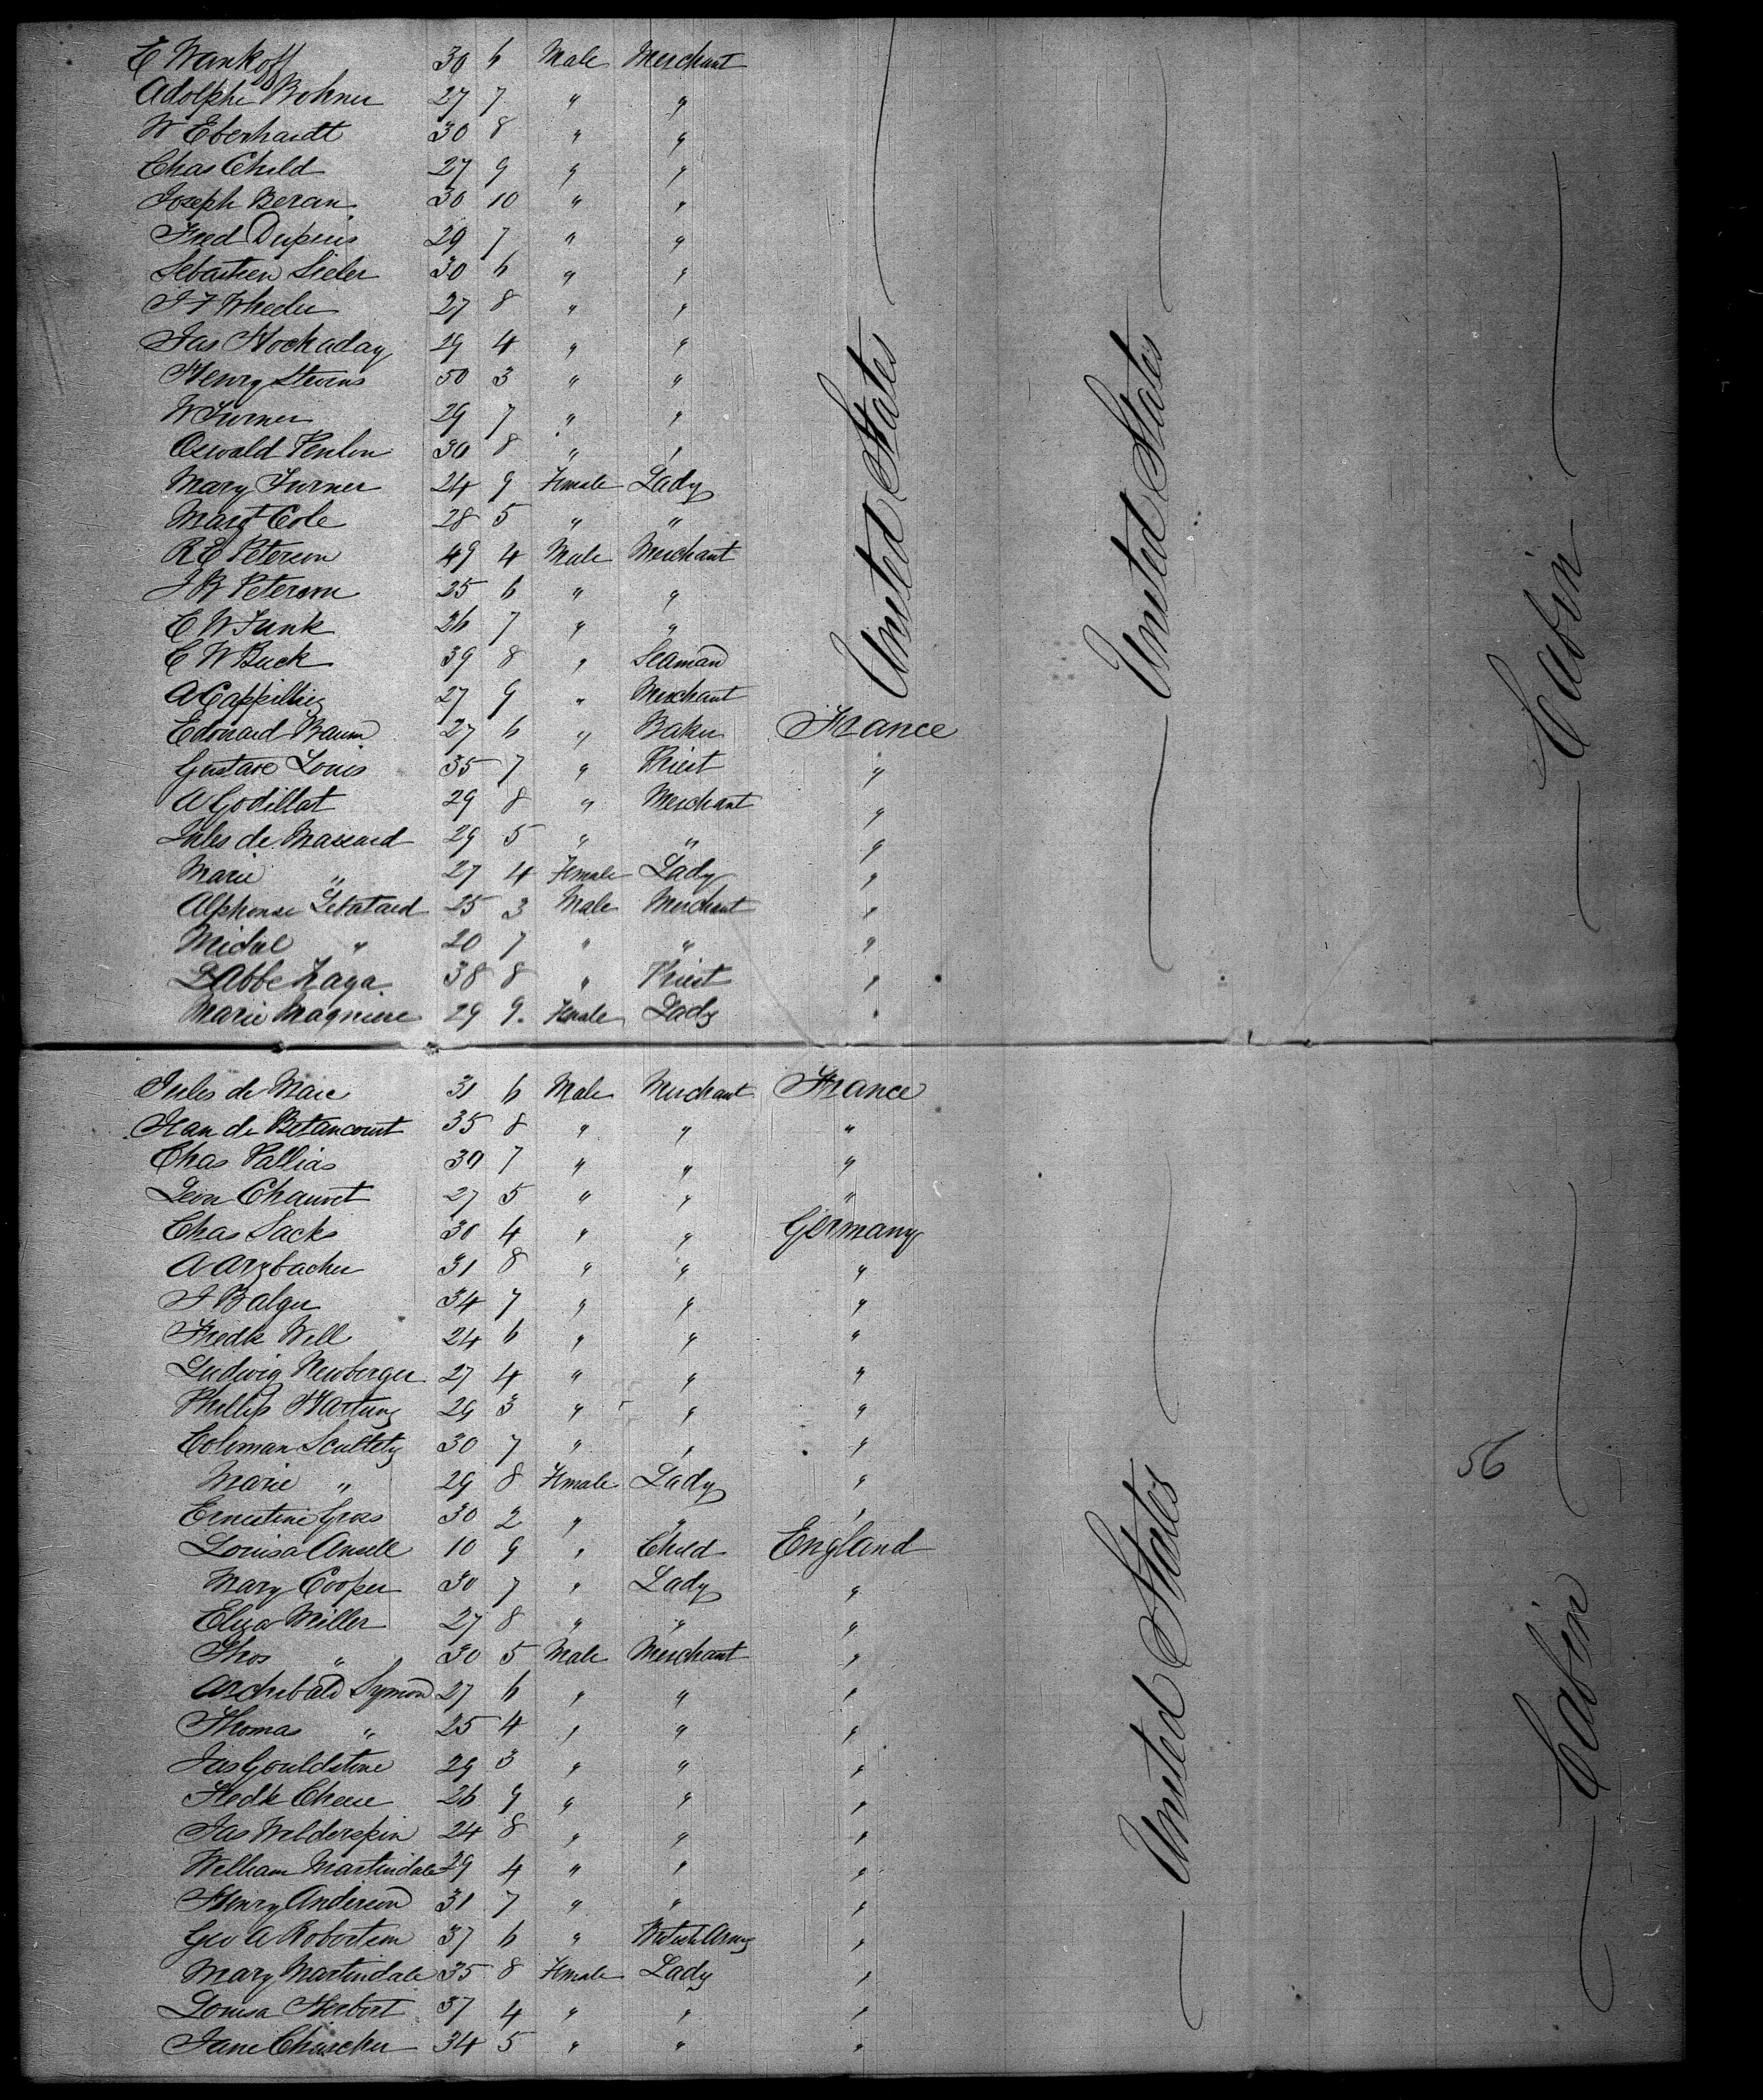 E Wankoff 30 6 Male Merchant
Adolphe Bohner 27 7 " "
W Eberhardt 30 8 " "
Chas Child 27 9 " "
Joseph Beran 30 10 " "
Fred Dupuis 29 7 " "
Sebastien Sieler 30 6 " "
J F Wheeler 27 8 " "
Jas Hockaday 29 4 " "
Henry Stevens 50 3 " "
W Turner 29 7 " "
Oswald 30 8 " "
Mary Turner 24 9 Female Lady
Mary Cole 28 5 " "
R E Peterson 49 4 Male Merchant
J B Peterson 25 6 " "
E W Funk 26 7 " "
C W Buck 39 8 " Seaman
A Cappilliez 27 9 " Merchant
United States
United States
Cabin
Edouard Baum 27 6 " Baker France
Gustave Louis 35 7 " Priest "
A Godillot 29 8 " Merchant "
Jules de Massard 29 5 " " "
Marie " 27 4 Female Lady "
Alphonse 25 3 Male Merchant "
" 20 7 " " "
L Abbe Zaga 38 8 " Priest "
Marie Magniere 29 9 Female Lady "
Jules de Marc 31 6 Male Merchant France
Jean de Betancourt 35 8 " " "
Chas Pallias 30 7 " " "
Leon Chauvet 27 5 " " "
Chas Sacks 30 4 " " Germany
A Arzbacher 31 8 " " "
J Balger 34 7 " " "
Fredk Will 24 6 " " "
Ludwig Newberger 27 4 " " "
Phillip Hartung 29 3 " " "
Coleman Scultety 30 7 " " "
Marie " 29 8 Female Lady "
Ernestine Gras 30 2 " " "
Louisa Ansell 10 9 " Child England
Mary Cooper 30 7 " Lady "
Eliza Miller 27 8 " " "
Thos " 30 5 Male Merchant "
Archibald Symon 27 6 " " "
Thomas " 25 4 " " "
Jas Gouldstone 29 3 " " "
Fredk Cheese 26 9 " " "
Jas Wilderspin 24 8 " " "
William Martindale 29 4 " " "
Henry Anderson 31 7 " " "
Geo A Robertson 37 6 " British Army "
Mary Martindale 35 8 Female Lady "
Louisa Herbert 37 4 " " "
Jane 34 5 " " "
United States
56
Cabin